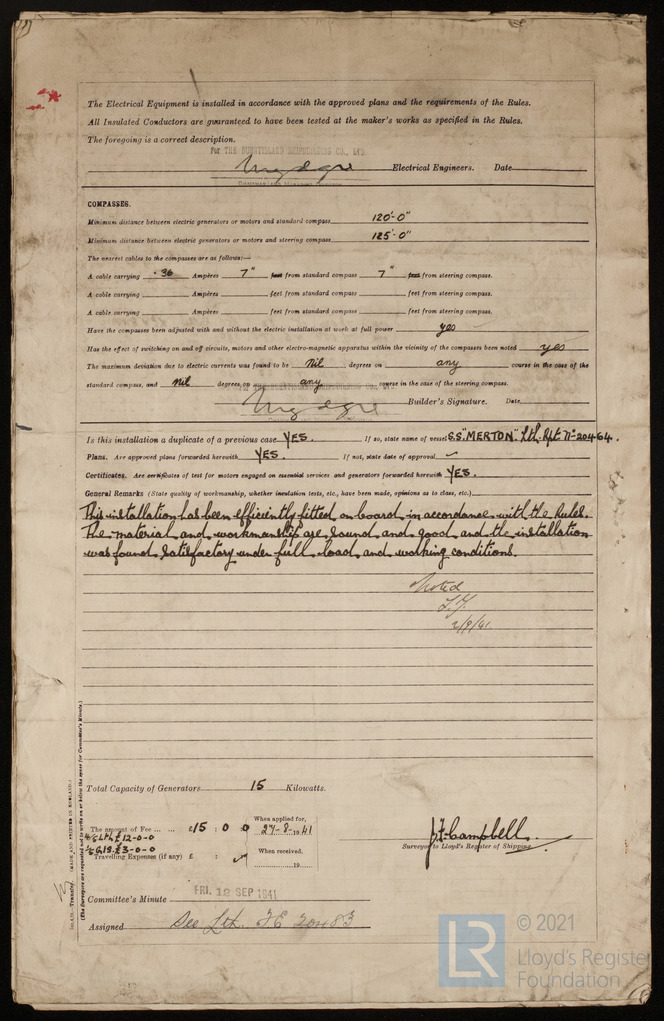 The Electrical Equipment is installed in accordance with the approved plans and the requirements of the Rules.
All Insulated Conductors are guaranteed to have been tested at the maker's works as specified in the Rules.
The foregoing is a correct description.
For THE BURNTISLAND SHIPBUILDING CO., LTD.
Electrical Engineers. Date
COMPASSES.
Minimum distance between electric generators or motors and standard compass 120'-0"
Minimum distance between electric generators or motors and steering compass 125'-0"
The nearest cables to the compasses are as follows:—
A cable carrying ·36 Ampères 7" feet from standard compass 7" feet from steering compass.
A cable carrying Ampères feet from standard compass feet from steering compass.
A cable carrying Ampères feet from standard compass feet from steering compass.
Have the compasses been adjusted with and without the electric installation at work at full power yes
Has the effect of switching on and off circuits, motors and other electro-magnetic apparatus within the vicinity of the compasses been noted yes
The maximum deviation due to electric currents was found to be Nil degrees on any course in the case of the
standard compass, and Nil degrees on any course in the case of the steering compass.
Builder's Signature. Date
Is this installation a duplicate of a previous case YES. If so, state name of vessel S.S. "MERTON" Lth. Rpt. No 20464.
Plans. Are approved plans forwarded herewith YES. If not, state date of approval ✓
Certificates. Are certificates of test for motors engaged on essential services and generators forwarded herewith YES.
General Remarks (State quality of workmanship, whether insulation tests, etc., have been made, opinions as to class, etc.)
This installation has been efficiently fitted on board in accordance with the Rules.
The material and workmanship are sound and good and the installation
was found satisfactory under full load and working conditions.
Noted
2/9/41
Total Capacity of Generators 15 Kilowatts.
The amount of Fee ... ... £15 : 0 : 0
When applied for, 27-8-1941
4/5 Lth. £12-0-0
1/5 Gls. £3-0-0
Travelling Expenses (if any) £ : : ✓
When received, 19
J. F. Campbell.
Surveyor to Lloyd's Register of Shipping.
Committee's Minute FRI. 12 SEP 1941
Assigned See Lth. F.E. 20483
(MADE AND PRINTED IN ENGLAND.)
(The Surveyors are requested not to write on or below the space for Committee's Minute.)
© 2021
LR
Lloyd's Register
Foundation